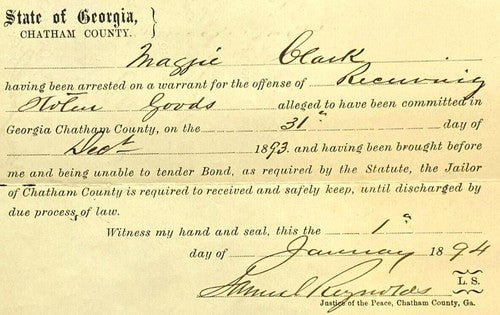 State of Georgia,
CHATHAM COUNTY.
Maggie Clark
having been arrested on a warrant for the offense of Receiving
Stolen Goods alleged to have been committed in
Georgia Chatham County, on the 31st day of
Dect 1893. and having been brought before
me and being unable to tender Bond, as required by the Statute, the Jailor
of Chatham County is required to received and safely keep, until discharged by
due process of law.
Witness my hand and seal, this the 1st
day of January 1894
Samuel Reynolds L. S.
Justice of the Peace, Chatham County, Ga.